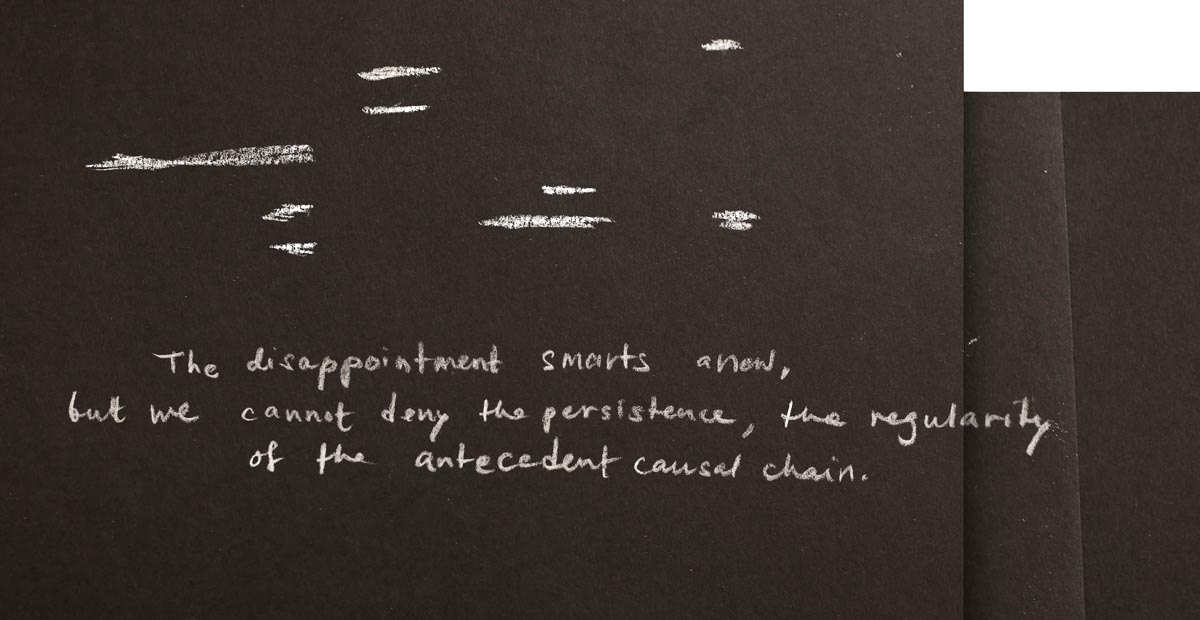 The disappointment smarts anow,
but we cannot deny the persistence, the regularity
of the antecedent causal chain.